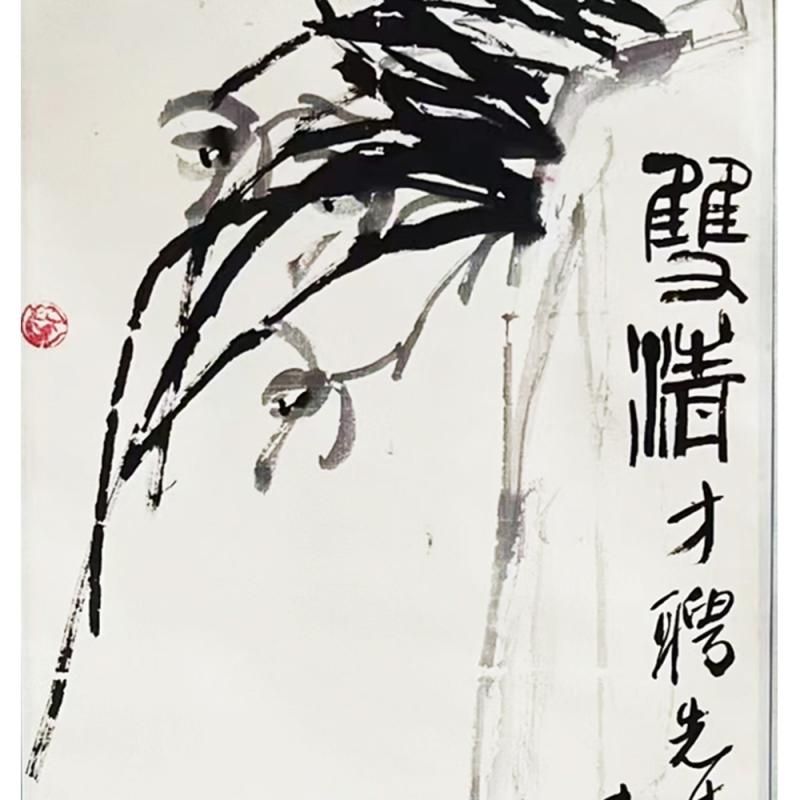 雙清才聘先